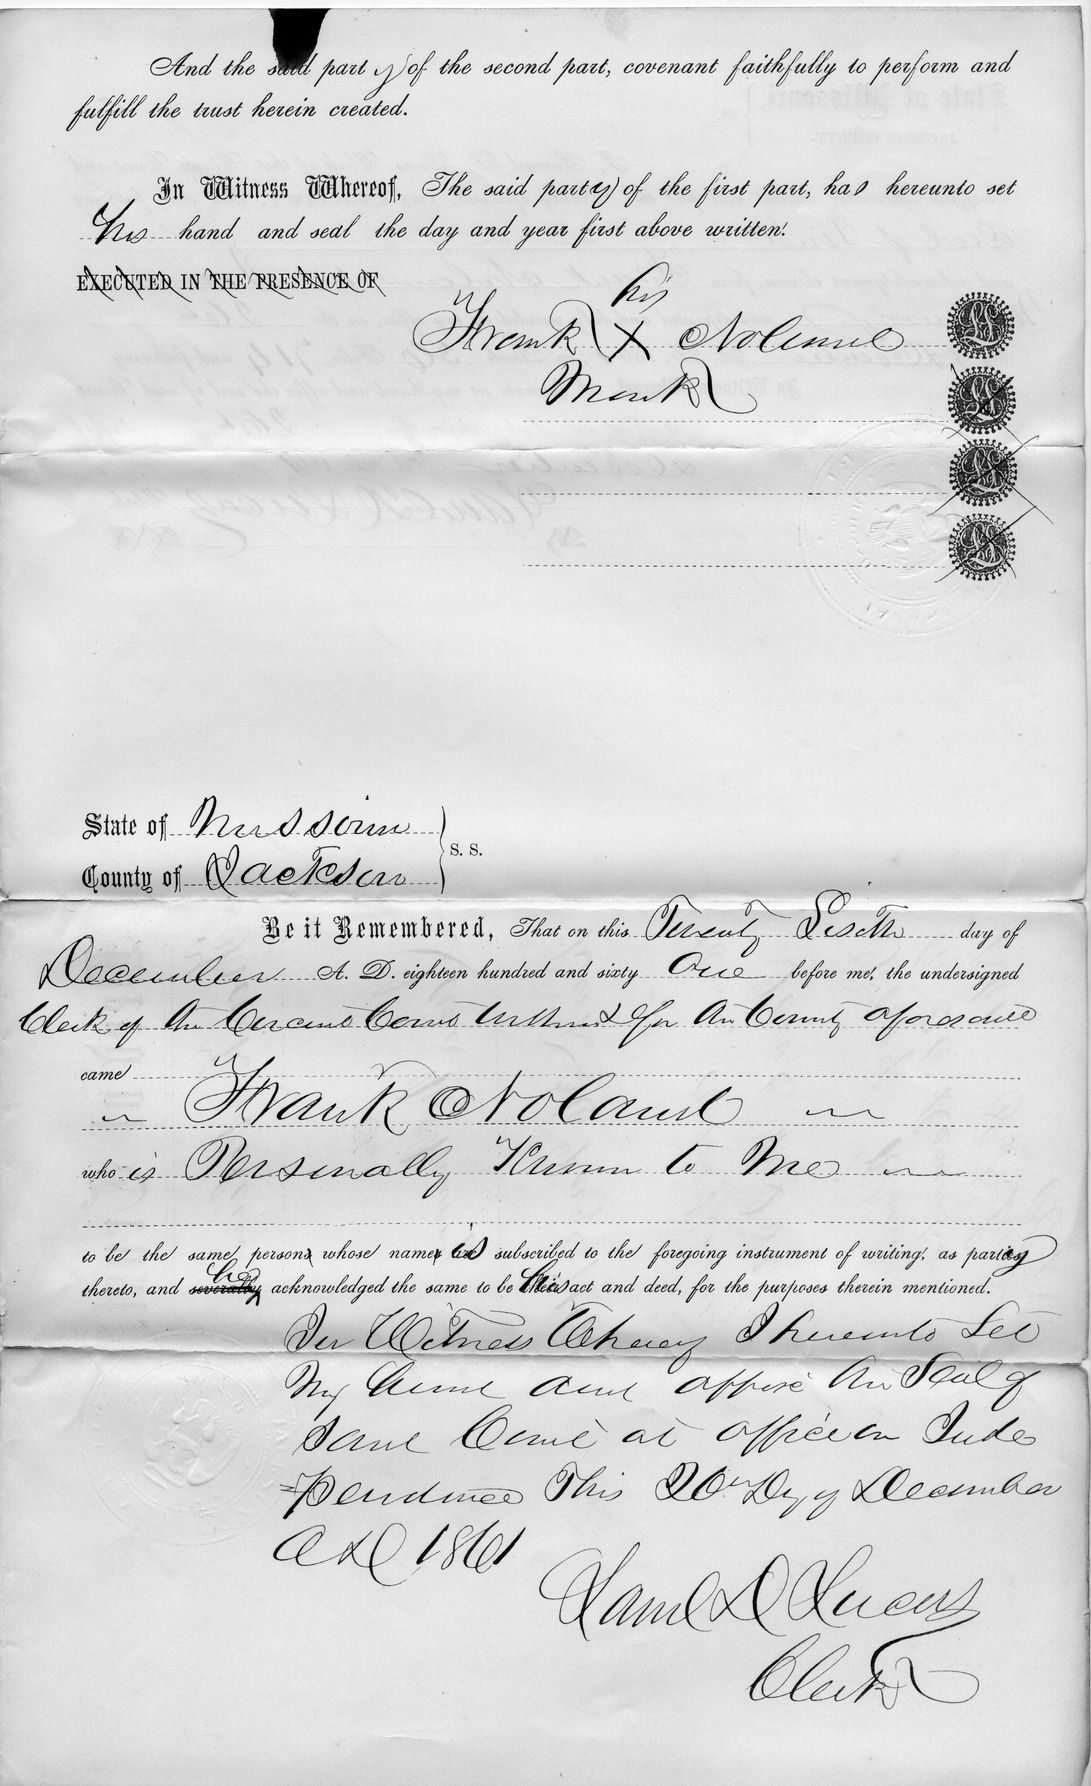 And the said party of the second part, covenant faithfully to perform and
fulfill the trust herein created.
In Witness Whereof, The said party of the first part, has hereunto set
his hand and seal the day and year first above written.
EXECUTED IN THE PRESENCE OF
his
Frank X Noland
Mark
State of Missouri
County of Jackson
S. S.
Be it Remembered, That on this Twenty Sixth day of
December A. D. eighteen hundred and sixty One before me, the undersigned
Clerk of the Circuit Court Within & for the County aforesaid
came
Frank Noland
who is Personally Known to Me
to be the same person whose name is subscribed to the foregoing instrument of writing, as party
thereto, and he acknowledged the same to be his act and deed, for the purposes therein mentioned.
In Witness Whereof I hereunto Set
My hand and affix the Seal of
Said Court at office in Inde
=pendence This 26th Day of December
A D 1861
Saml D Lucas
Clerk